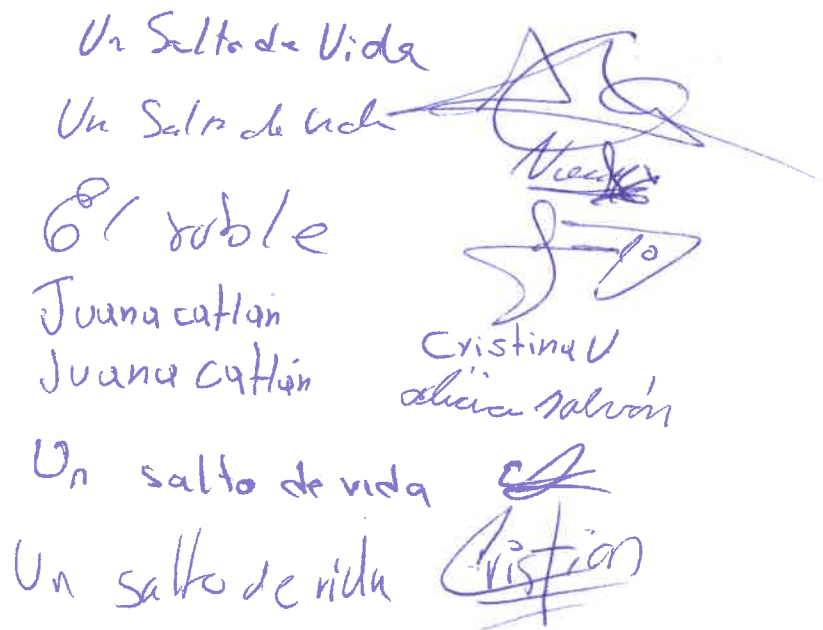 Un Salto de Vida
Un Salto de Vida
roble
Juanacatlan
Juanacatlán Cristina V
alicia
Un salto de vida
Un salto de vida Cristian